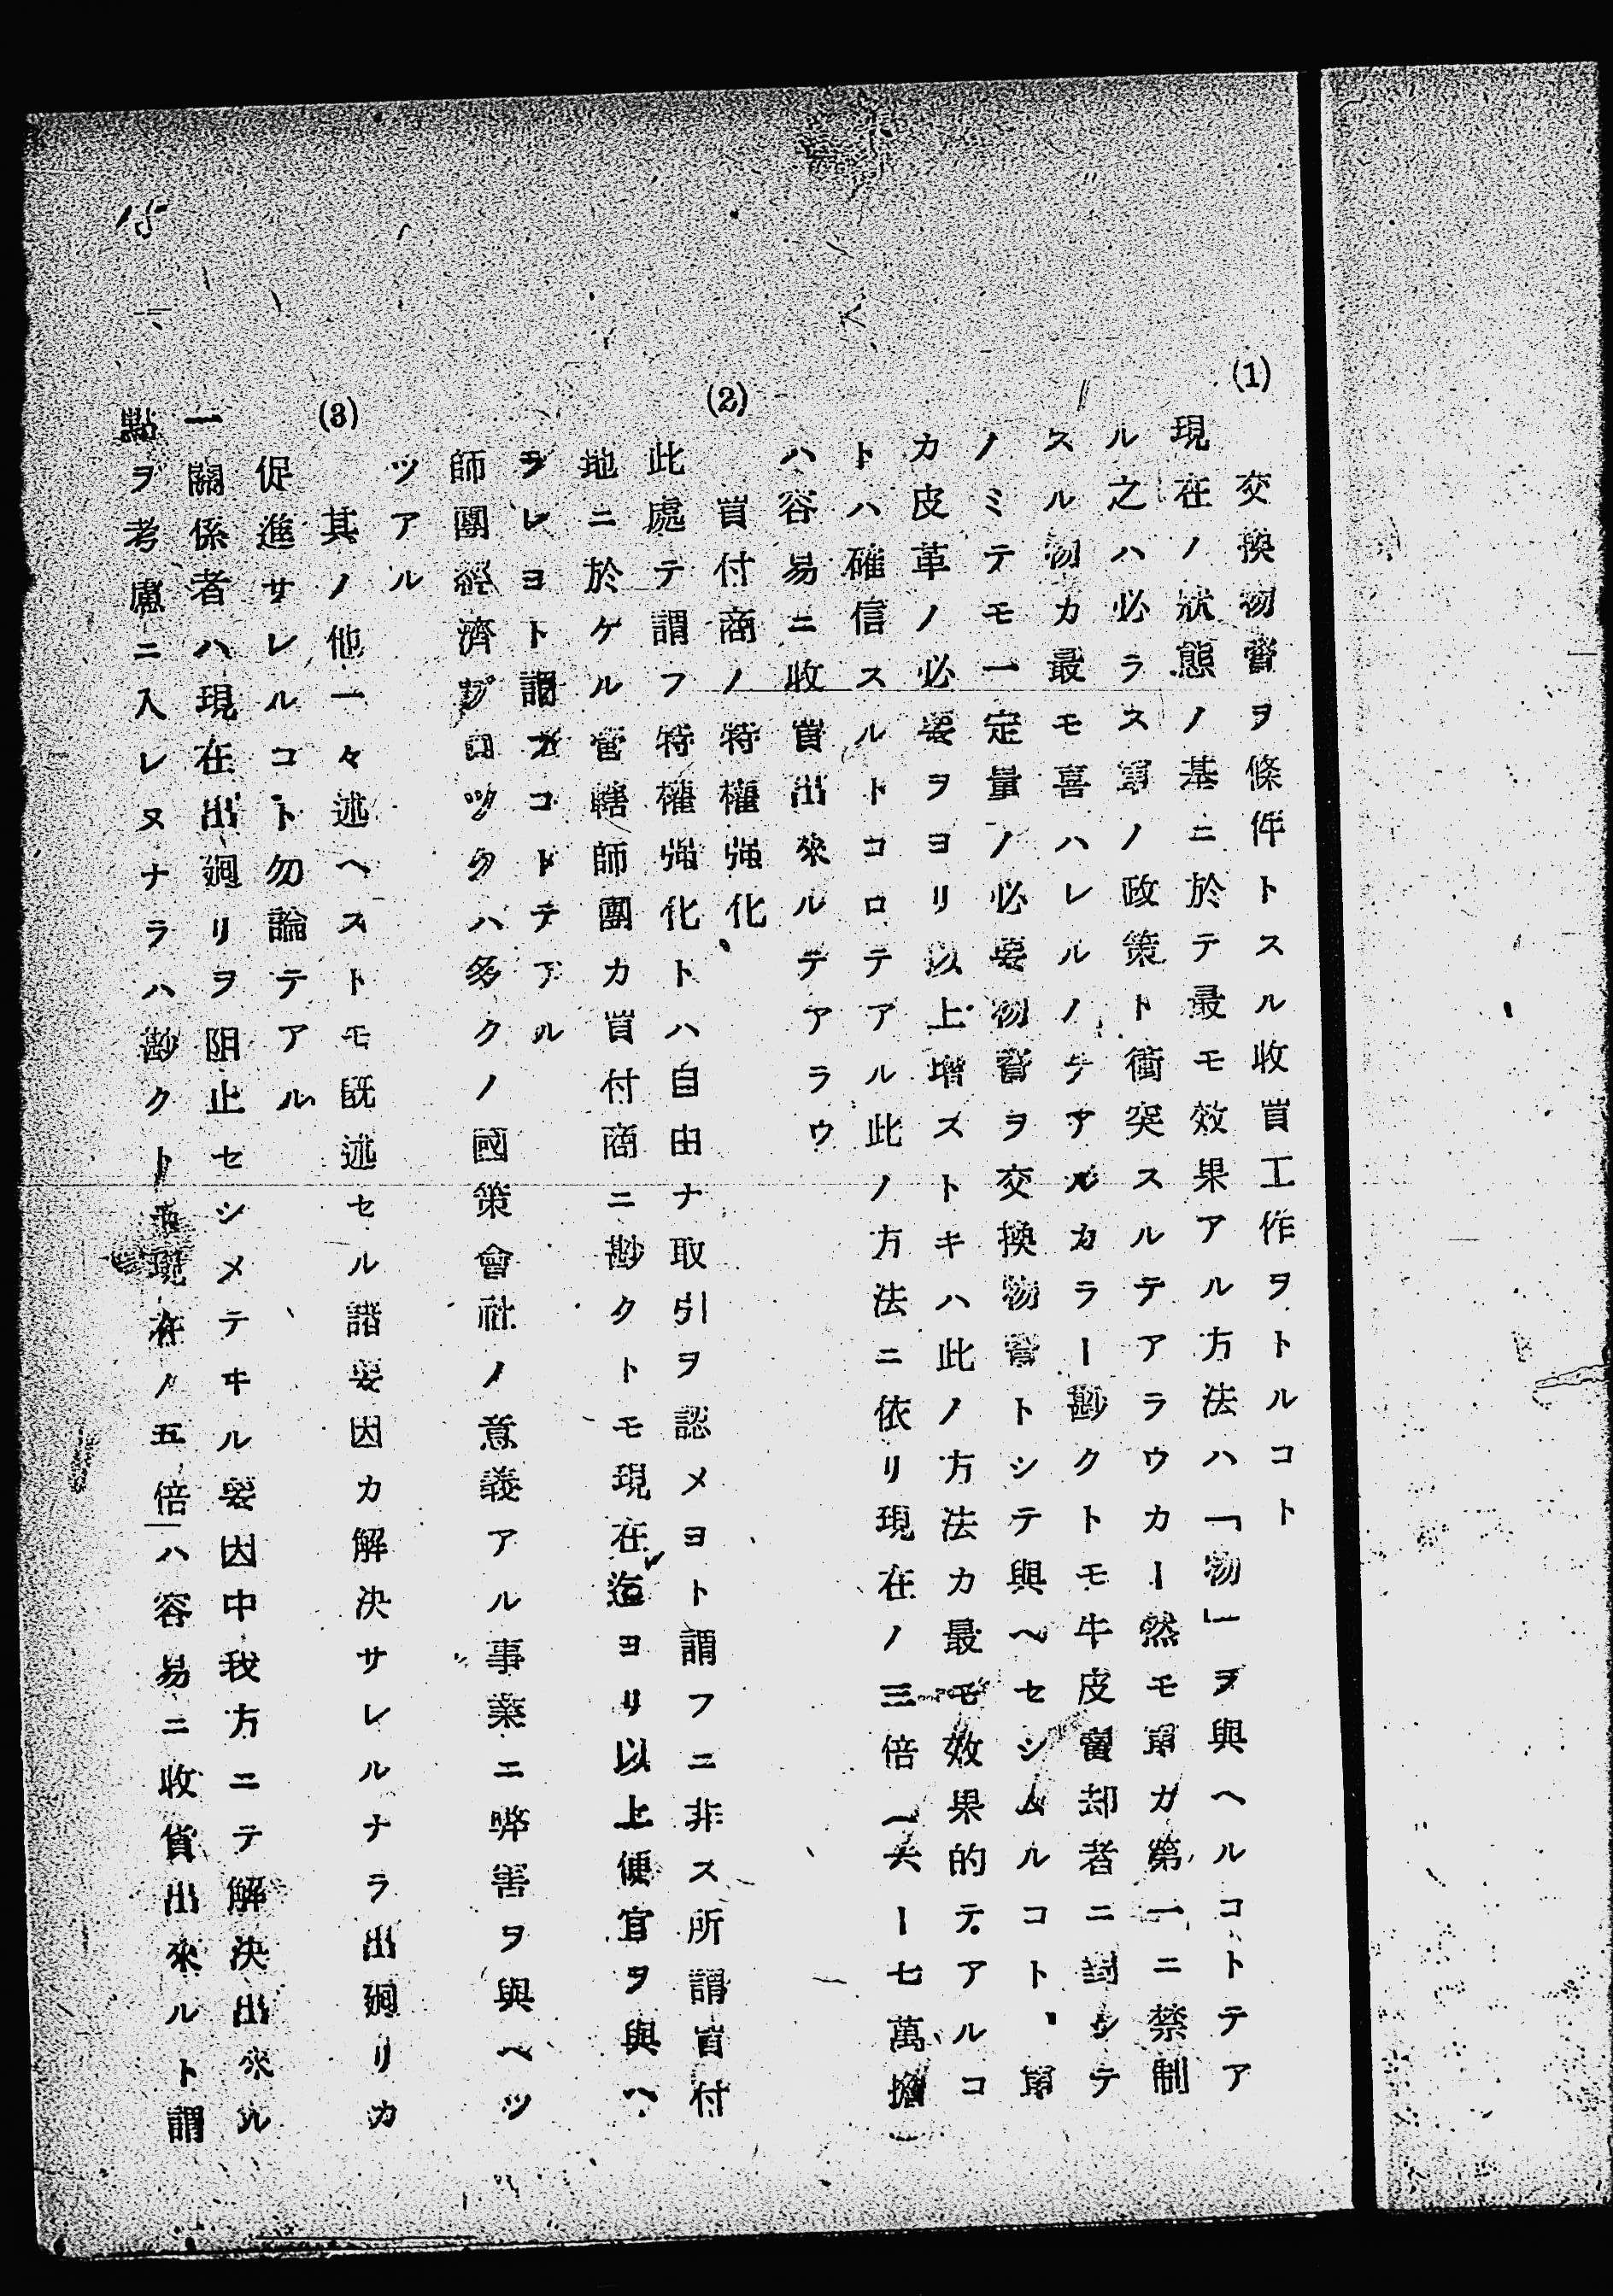 (1) 交換物資ヲ條件トスル收買工作ヲトルコト
現在ノ狀態ノ基ニ於テ最モ效果アル方法ハ「物」ヲ與ヘルコトテア
ル之ハ必ラス軍ノ政策ト衝突スルテアラウカー然モ軍ガ第一ニ禁制
スル物カ最モ喜ハレルノテアルカラー尠クトモ牛皮賣却者ニ對シテ
ノミテモ一定量ノ必要物資ヲ交換物資トシテ與ヘセシムルコト、軍
カ皮革ノ必要ヲヨリ以上增ストキハ此ノ方法カ最モ效果的テアルコ
トハ確信スルトコロテアル此ノ方法ニ依リ現在ノ三倍(六ー七萬擔)
ハ容易ニ收買出來ルテアラウ
(2) 買付商ノ特權强化
此處テ謂フ特權强化トハ自由ナ取引ヲ認メヨト謂フニ非ス所謂買付
地ニ於ケル管轄師團カ買付商ニ尠クトモ現在迄ヨリ以上便宜ヲ與ハ
ラレヨト謂フコトテアル
師團經濟ブロツクハ多クノ國策會社ノ意義アル事業ニ弊害ヲ與ヘツ
ツアル
(3) 其ノ他一々述ヘストモ既述セル諸要因カ解決サレルナラ出廻リカ
促進サレルコト勿論テアル
一關係者ハ現在出廻リヲ阻止セシメテヰル要因中我方ニテ解決出來ル
點ヲ考慮ニ入レヌナラハ尠クト現在ノ五倍ハ容易ニ收貨出來ルト謂